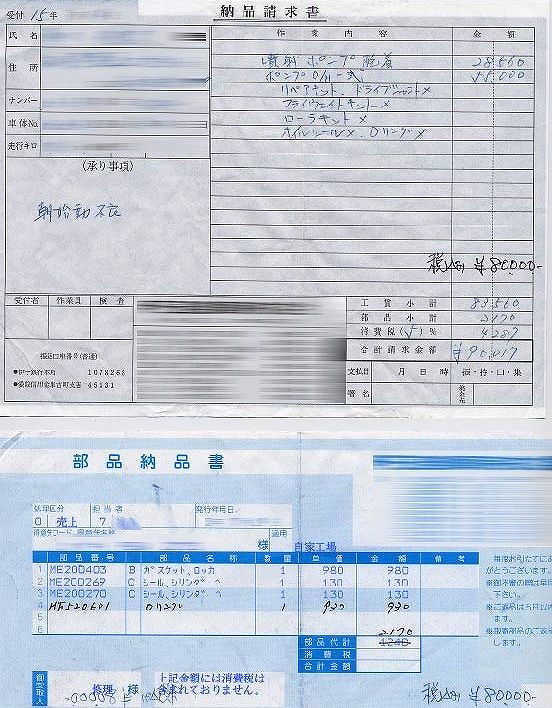 受付 15年
納品請求書
氏名
住所
ナンバー
車体No.
走行キロ
(承り事項)
朝始動不良
作業内容 金額
噴射ポンプ脱着 28,560
ポンプO/H一式 55,000
リペアキット、ドライブシャフト×
フライウェイトキット×
ローラキット×
オイルシール×、Oリング×
税込 ¥80000-
受付者 作業員 検査
振込口座番号(普通)
1078268
45131
工賃小計 83,560
部品小計 2170
消費税(5)% 4287
合計請求金額 ¥90,017
支払日 月 日 時 振・持・口・集
署名
部品納品書
処理区分 担当者 発行年月日
0 売上 7
様
適用
自家工場
部品番号 部品名称 数量 単価 金額 備考
1 ME200403 B ガスケット、ロッカ 1 980 980
2 ME200269 C シール、シリンダヘ 1 130 130
3 ME200270 C シール、シリンダヘ 1 130 130
4 Oリング 1 930 930
5
6
2170
部品代計 1240
消費税
合計金額
毎度お引たてにあり
がとうございます。
下さい。
ます。
します。
御受取人
修理 様
上記金額には消費税は
含まれておりません。
税込 ¥80000-